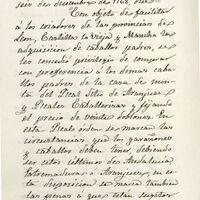 seis de diciembre de 1768 dice
Con objeto de facilitar
á los criadores de las provincias de
Leon, Castilla la Vieja y Mancha la
adquisicion de caballos padres, se
les concede privilegio de comprar
con preferencia á los demas caba-
llos padres de la casa de mon-
ta del Real Sitio de Aranjuez
y Reales Caballerizas y fijando
el precio de veinte doblones. En
esta Real orden se marcan las
circunstancias que los garañones
y caballos deben tener, debiendo
ser estos últimos de Andalucia
Extremadura ó Aranjuez, en esta
disposicion se marca tambien
las penas á que están sujetos